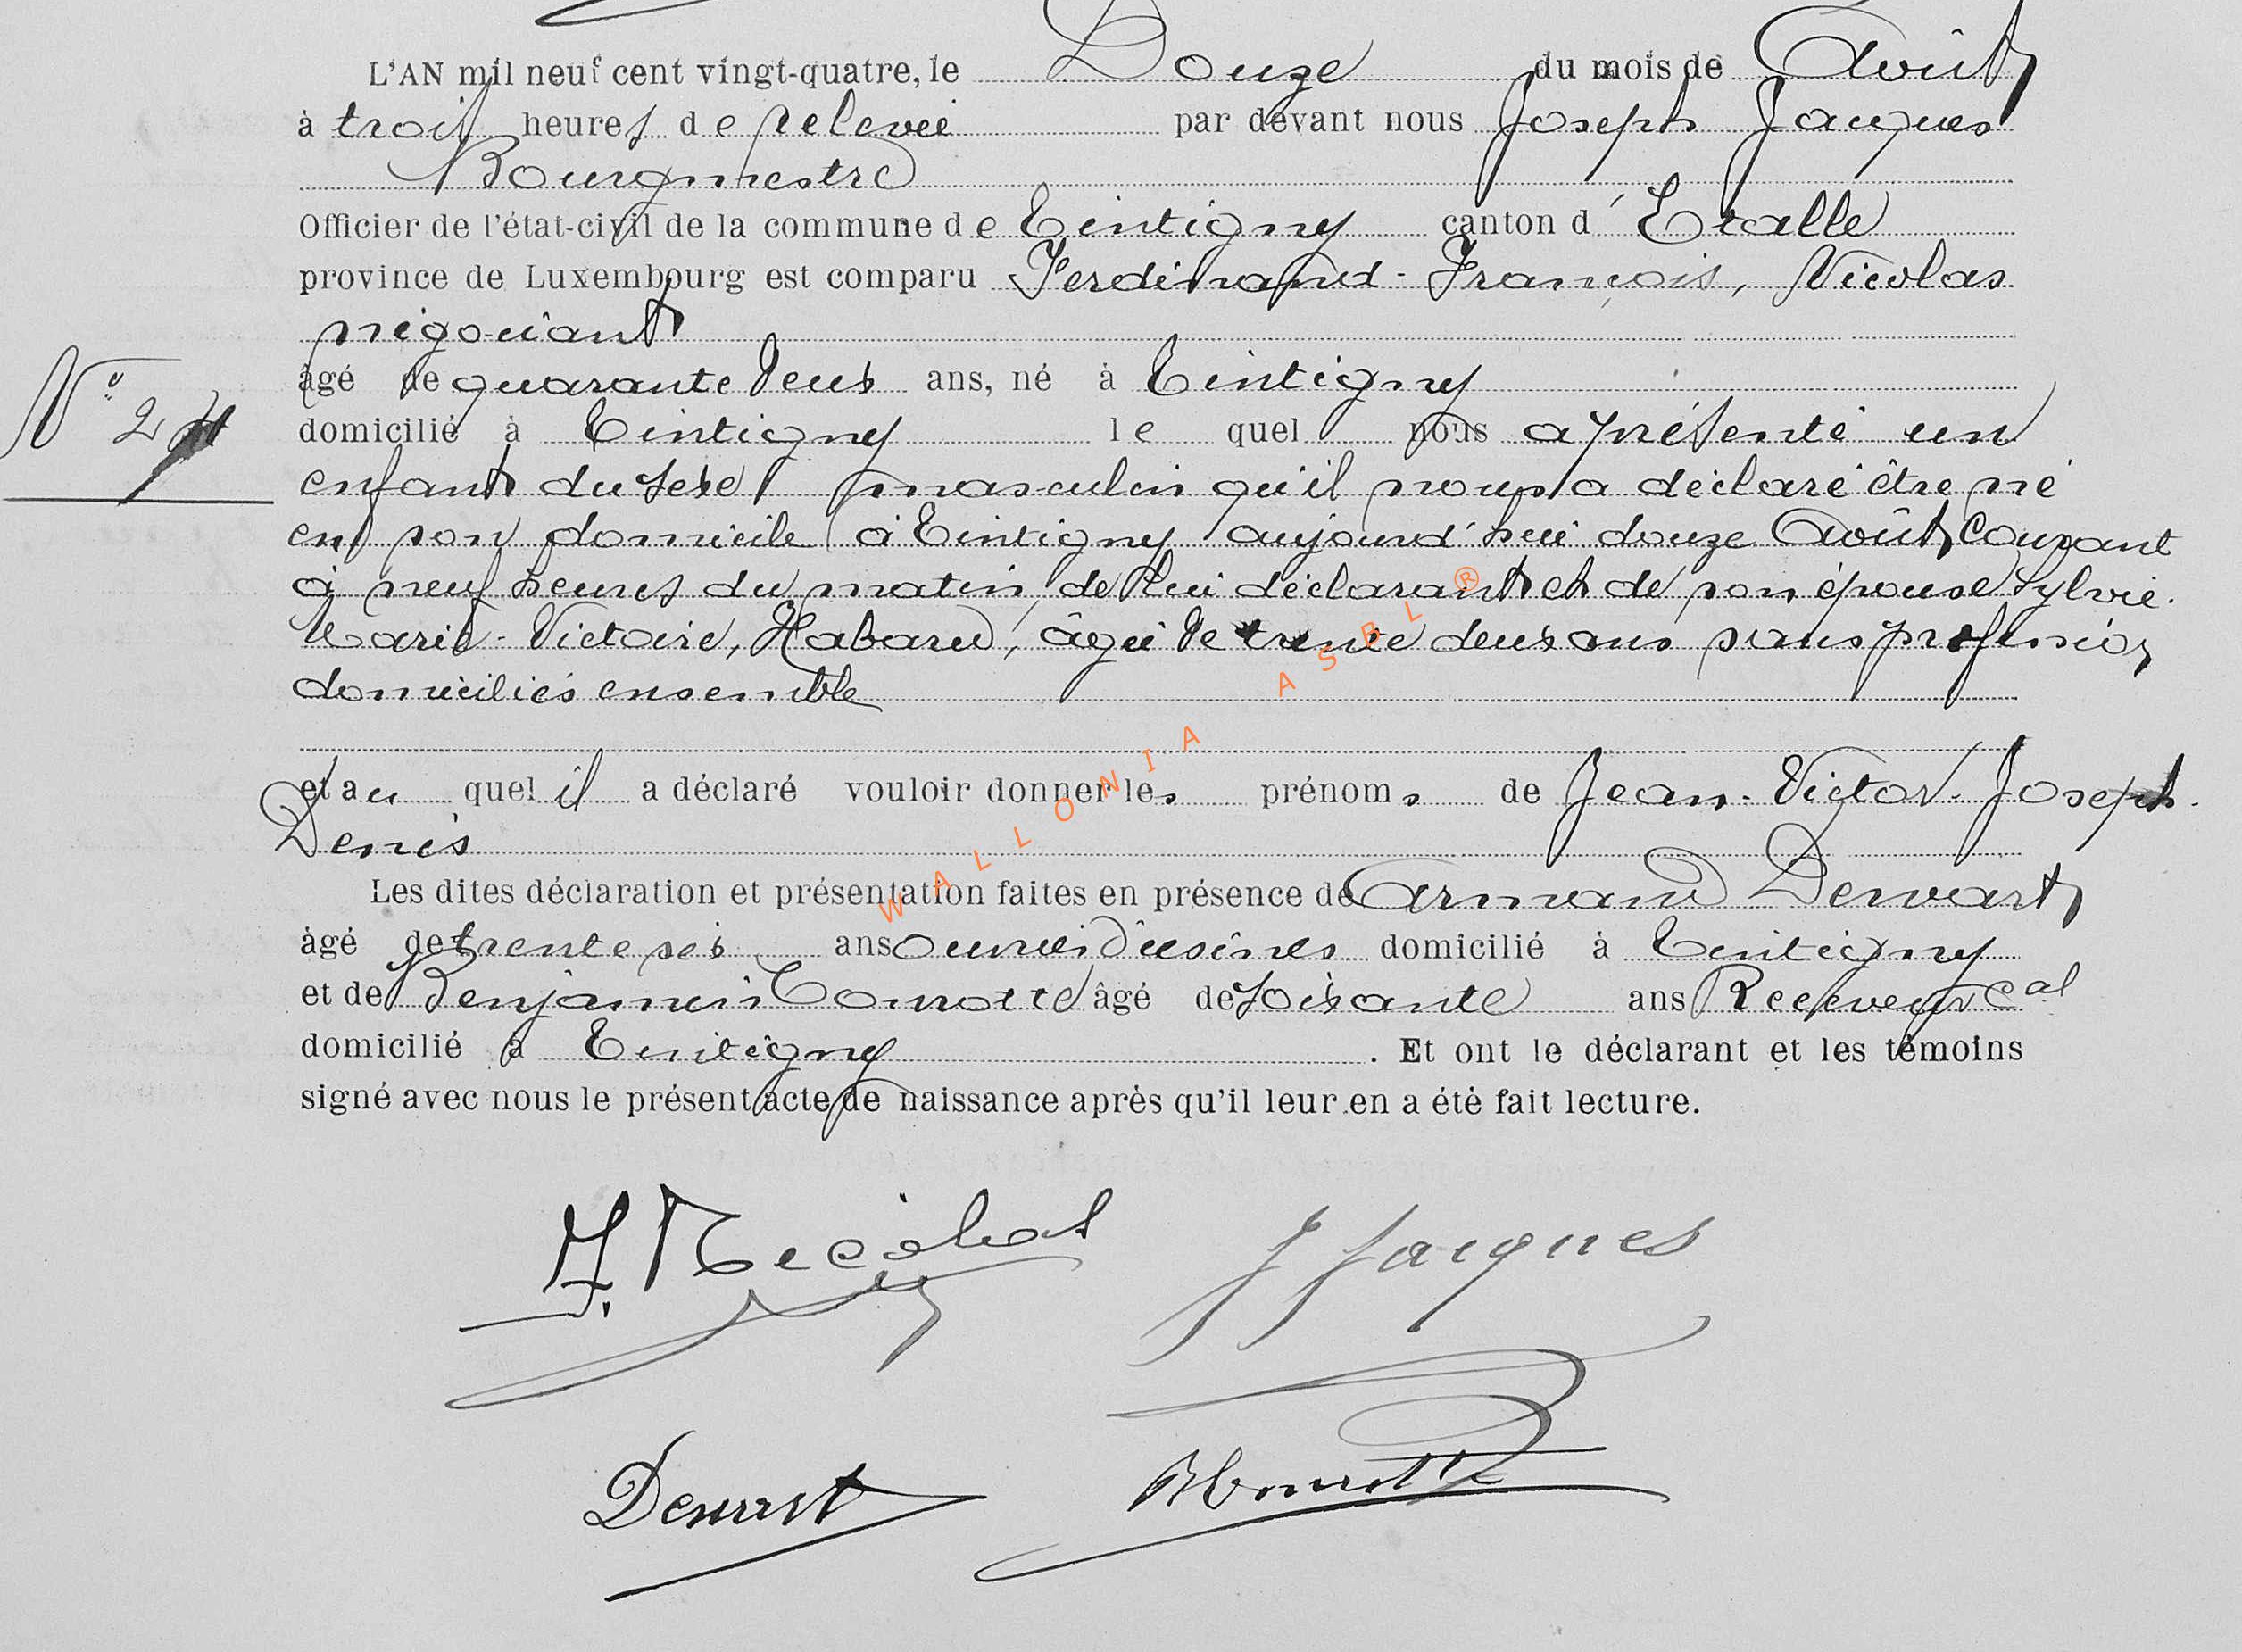 L'AN mil neuf cent vingt-quatre, le Douze du mois de Août
à trois heures de relevée par devant nous Joseph Jacques
Bourgmestre
Officier de l'état-civil de la commune de Tintigny canton d'Etalle
province de Luxembourg est comparu Ferdinand-François, Nicolas
négociant
âgé de quarante deux ans, né à Tintigny
N° 24
domicilié à Tintigny le quel nous a présenté un
enfant du sexe masculin qu'il nous a déclaré être né
en son domicile à Tintigny aujourd'hui douze Août courant
à neuf heures du matin, de lui déclarant et de son épouse Sylvie-
Marie-Victoire, Habaru, âgée de trente deux ans sans profession
domiciliés ensemble
et au quel il a déclaré vouloir donner les prénoms de Jean-Victor-Joseph-
Denis
Les dites déclaration et présentation faites en présence de Armand Dewart
âgé de trente six ans ouvrier d'usines domicilié à Tintigny
et de Benjamin Cornette âgé de soixante ans Receveur cal
domicilié à Tintigny. Et ont le déclarant et les témoins
signé avec nous le présent acte de naissance après qu'il leur en a été fait lecture.
F. Nicolas J Jacques
Dewart
WALLONIA ASBL ®